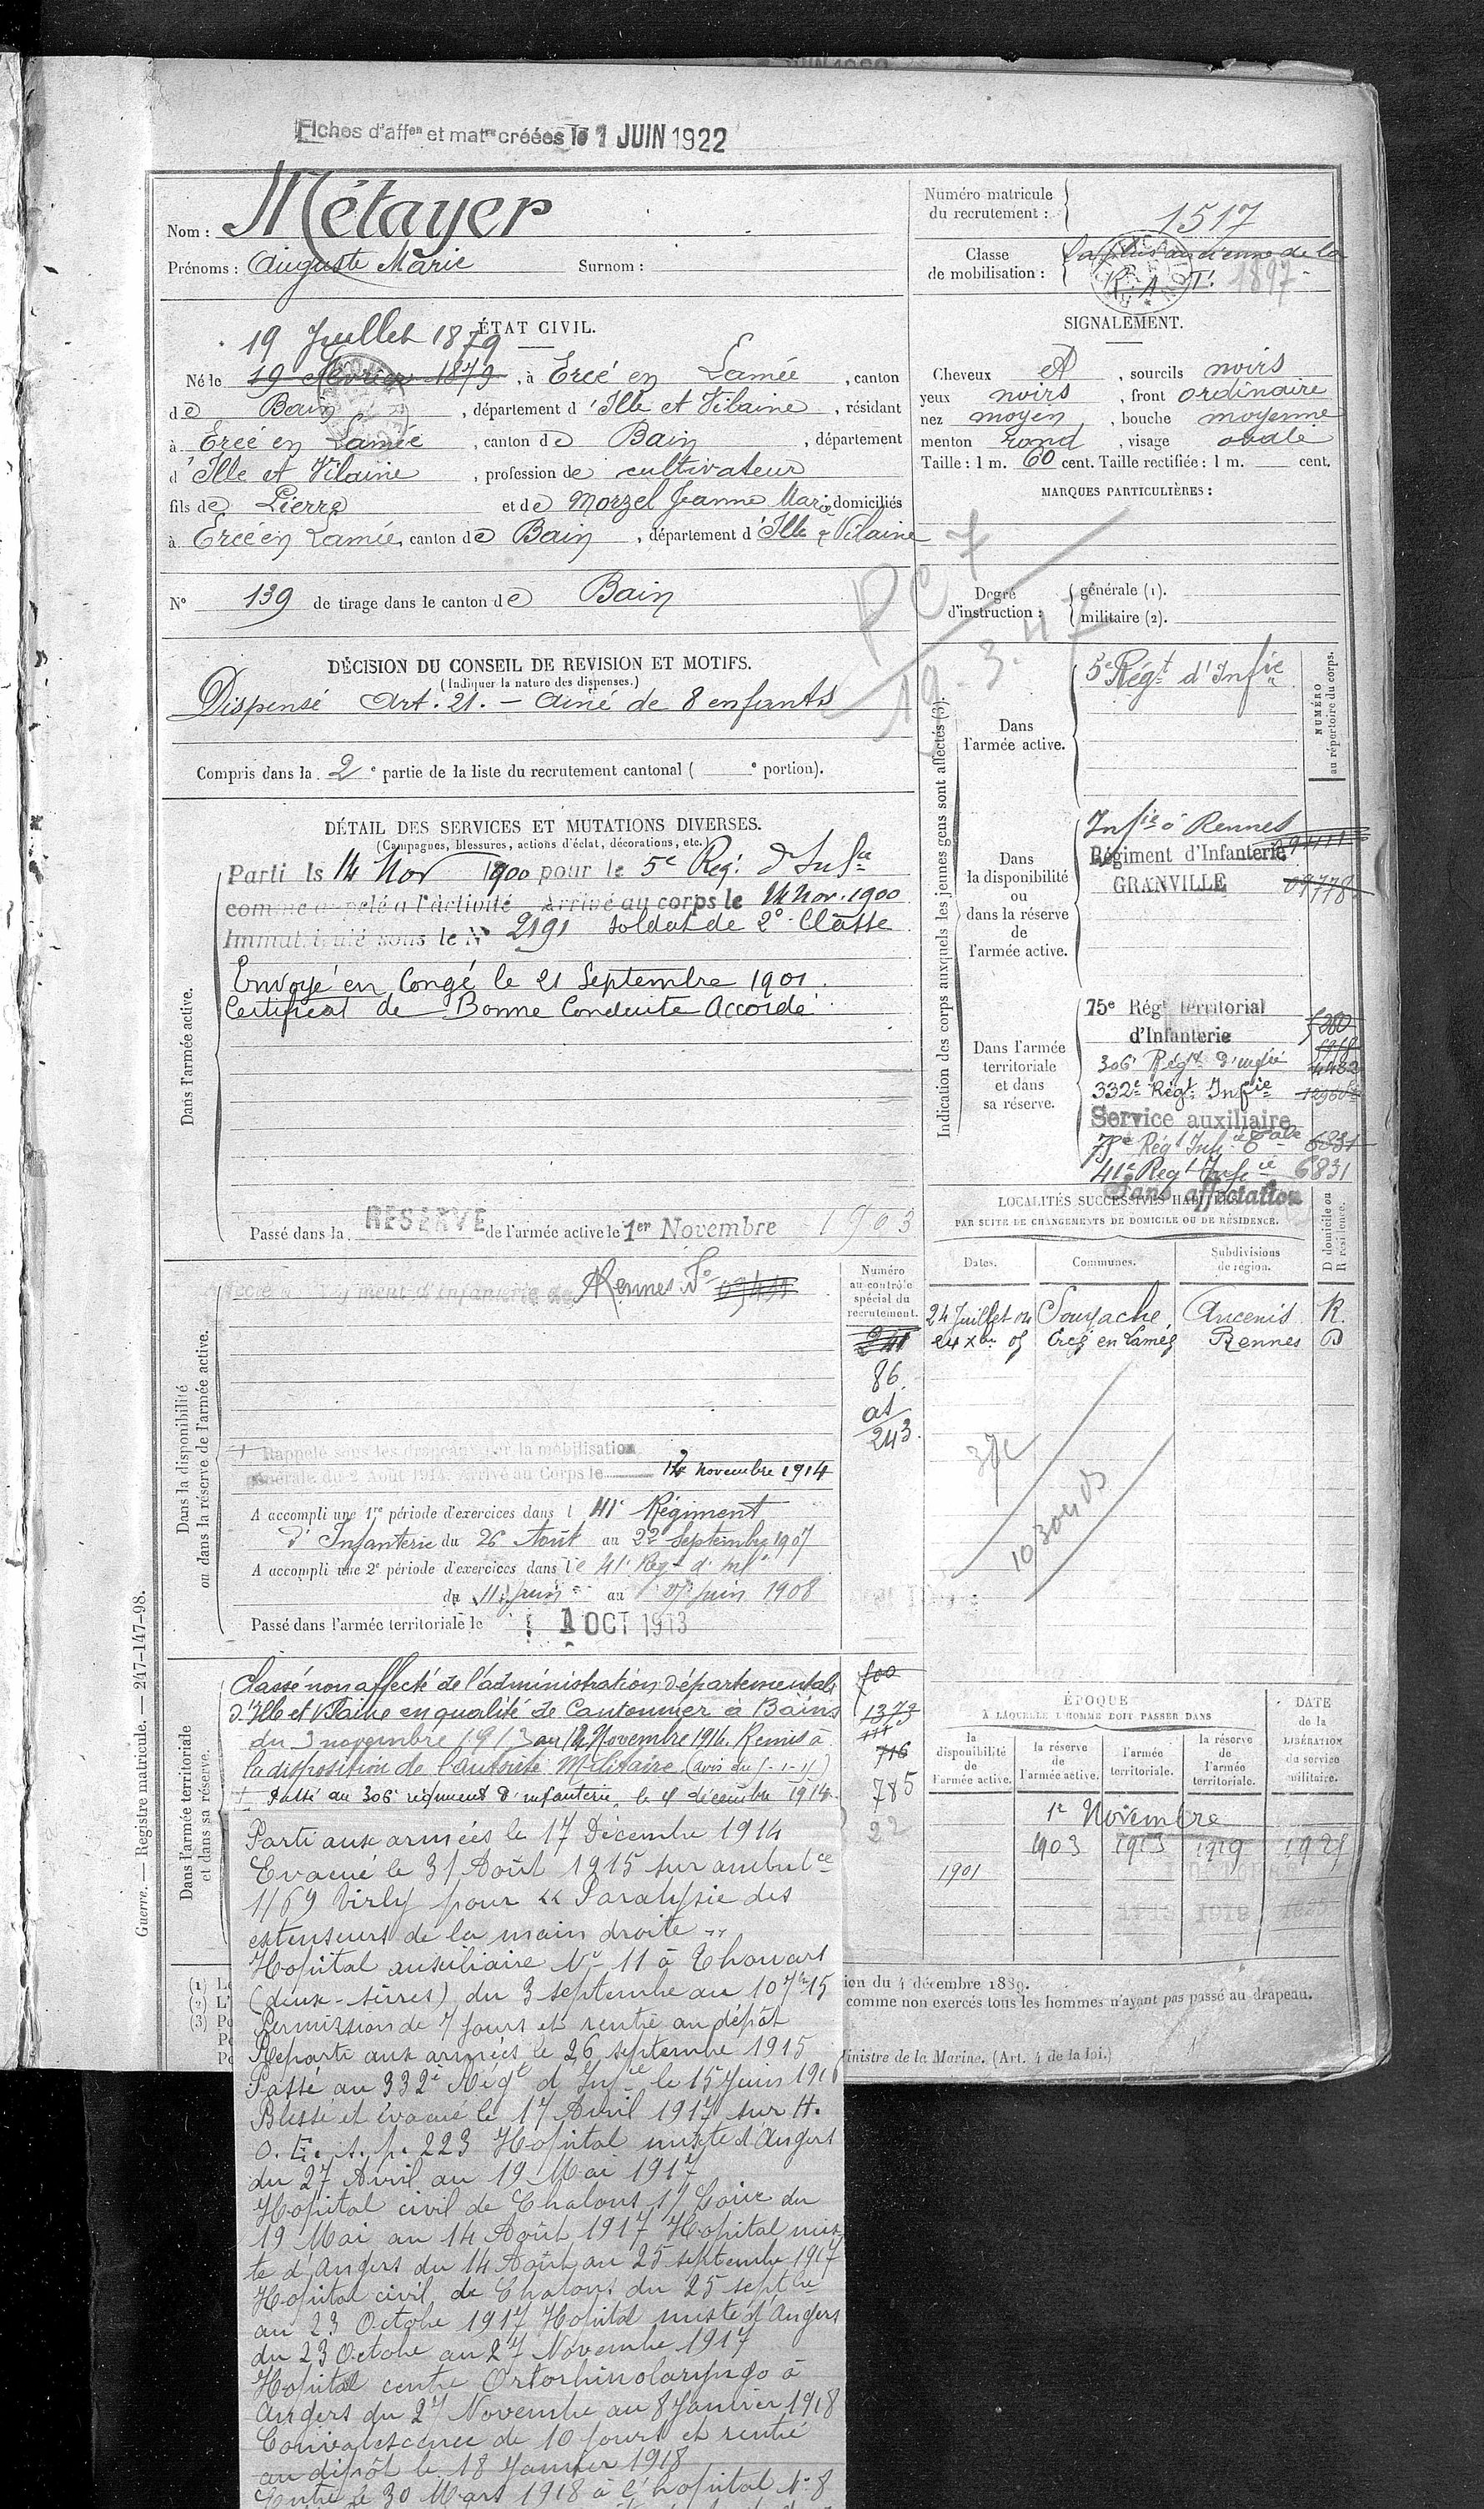 Fiches d'affen et matre créées le 1 JUIN 1922
Nom : Métayer
Prénoms : Auguste Marie Surnom :
Numéro matricule du recrutement : 1517
Classe de mobilisation : la plus ancienne de la R. A. T. 1897
ÉTAT CIVIL.
19 Juillet 1879
Né le 19 février 1879, à Ercé en Lamée, canton
de Bain, département d'Ille et Vilaine, résidant
à Ercé en Lamée, canton de Bain, département
d'Ille et Vilaine, profession de cultivateur
fils de Pierre et de Morzel Jeanne Marie domiciliés
à Ercé en Lamée, canton de Bain, département d'Ille & Vilaine
N° 139 de tirage dans le canton de Bain
SIGNALEMENT.
Cheveux et, sourcils noirs
yeux noirs, front ordinaire
nez moyen, bouche moyenne
menton rond, visage ovale
Taille : 1 m. 60 cent. Taille rectifiée : 1 m. cent.
MARQUES PARTICULIÈRES :
Degré d'instruction : générale (1).
militaire (2).
DÉCISION DU CONSEIL DE REVISION ET MOTIFS.
(Indiquer la nature des dispenses.)
Dispensé Art. 21. - Ainé de 8 enfants
Compris dans la 2e partie de la liste du recrutement cantonal ( e portion).
DÉTAIL DES SERVICES ET MUTATIONS DIVERSES.
(Campagnes, blessures, actions d'éclat, décorations, etc.)
Dans l'armée active.
Parti le 14 Nov 1900 pour le 5e Reg. d'Infie
comme appelé à l'activité Arrivé au corps le 14 Nov. 1900
Immatriculé sous le N° 2191 soldat de 2e Classe
Envoyé en Congé le 21 Septembre 1901.
Certificat de Bonne Conduite Accordé
Passé dans la RÉSERVE de l'armée active le 1er Novembre 1903
Indication des corps auxquels les jeunes gens sont affectés (3).
NUMÉRO au répertoire du corps.
Dans l'armée active.
5e Régt d'Infie
Dans la disponibilité ou dans la réserve de l'armée active.
Infie à Rennes
Régiment d'Infanterie
GRANVILLE 09778
Dans l'armée territoriale et dans sa réserve.
75e Régt territorial
d'Infanterie
306e Régt d'infie
332e Régt Infie
Service auxiliaire
75e Régt Infie 6831
41e Régt Infie 6831
Sans affectation
LOCALITÉS SUCCESSIVES HABITÉES
PAR SUITE DE CHANGEMENTS DE DOMICILE OU DE RÉSIDENCE.
Dates. Communes. Subdivisions de région. D domicile ou R résidence.
24 Juillet 04 Ancenis R.
24 Xbre 05 Ercé en Lamée Rennes D
Dans la disponibilité ou dans la réserve de l'armée active.
Numéro au contrôle spécial du recrutement.
Régiment d'infanterie de Rennes N°
241
86.
at
243.
Rappelé sous les drapeaux par la mobilisation
générale du 2 Août 1914. Arrivé au Corps le 12 novembre 1914
A accompli une 1re période d'exercices dans l 41e Régiment
d'Infanterie du 26 Août au 22 Septembre 1907
A accompli une 2e période d'exercices dans le 41e Régt d'Infie
du 11 juin au 27 juin 1908
Passé dans l'armée territoriale le 1 OCT 1913
Dans l'armée territoriale et dans sa réserve.
Classé non affecté de l'administration départementale
d'Ille et Vilaine en qualité de Cantonnier à Bains
du 3 novembre 1913 au 12 Novembre 1914. Remis à
la disposition de l'autorité Militaire
Passé au 306e régiment d'infanterie, le 4 décembre 1914
700
1373
716
785
Parti aux armées le 17 Décembre 1914
Evacué le 31 Août 1915 sur ambulce
1/69 Virly pour "Paralysie des
extenseurs de la main droite"
Hopital auxiliaire N° 11 à Thouars
(deux-sèvres) du 3 septembre au 10 7bre 15
Permission de 7 jours et rentré au dépôt
Reparti aux armées le 26 septembre 1915
Passé au 332e Régt d'Infie le 15 Juin 1916
Blessé et évacué le 17 Avril 1917 sur H.
O. E. s. p. 223 Hopital mixte d'Angers
du 27 Avril au 19 Mai 1917
Hopital civil de Chalons s/ Loire du
19 Mai au 14 Août 1917 Hopital mix
te d'Angers du 14 Août au 25 septembre 1917
Hopital civil de Chalons du 25 septbre
au 23 Octobre 1917 Hopital mixte d'Angers
du 23 Octobre au 27 Novembre 1917
Hopital centre Ortorhinolaryngo à
Angers du 27 Novembre au 8 Janvier 1918
Convalescence de 10 jours et rentré
au dépôt le 18 Janvier 1918
Entré le 30 Mars 1918 à l'hopital N° 8
ÉPOQUE
À LAQUELLE L'HOMME DOIT PASSER DANS
la disponibilité de l'armée active. la réserve de l'armée active. l'armée territoriale. la réserve de l'armée territoriale. DATE de la LIBÉRATION du service militaire.
1er Novembre
1901 1903 1913 1919 1925
ion du 4 décembre 1889.
comme non exercés tous les hommes n'ayant pas passé au drapeau.
Ministre de la Marine. (Art. 4 de la loi.)
Guerre. — Registre matricule. — 247-147-98.